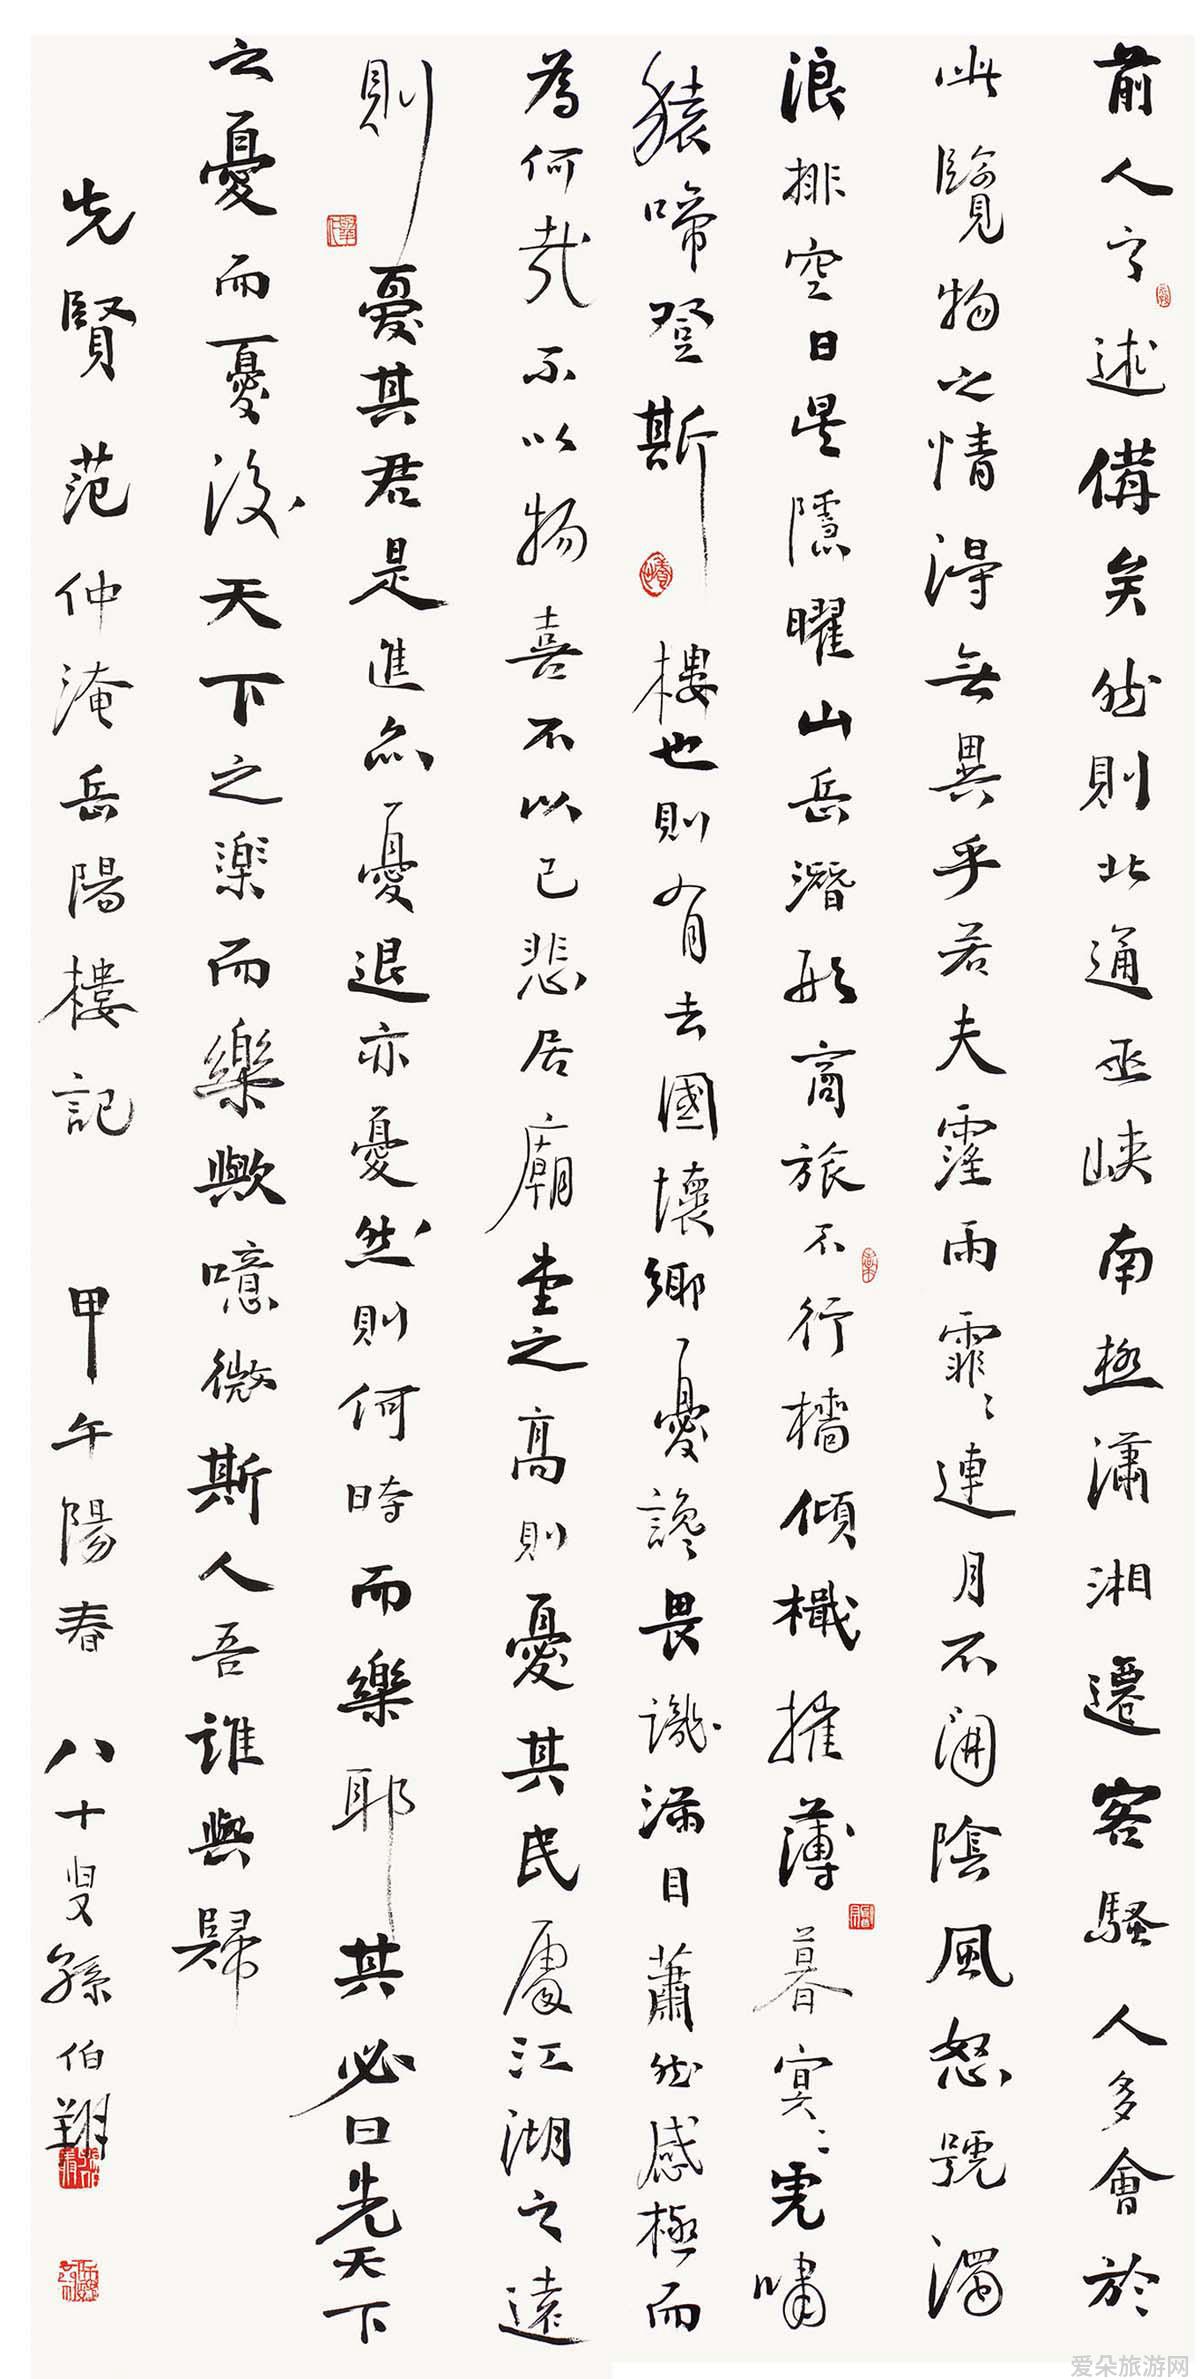 前人之述備矣然則北通巫峽南極瀟湘遷客騷人多會於
此覽物之情得無異乎若夫霪雨霏〻連月不開陰風怒號濁
浪排空日星隱曜山岳潛形商旅不行檣傾檝摧薄暮冥〻虎嘯
猿啼登斯樓也則有去國懷鄉憂讒畏譏滿目蕭然感極而
為何哉不以物喜不以己悲居廟堂之高則憂其民處江湖之遠
則憂其君是進亦憂退亦憂然則何時而樂耶其必曰先天下
之憂而憂後天下之樂而樂歟噫微斯人吾誰與歸
先賢范仲淹岳陽樓記 甲午陽春 八十叟孫伯翔
爱朵旅游网